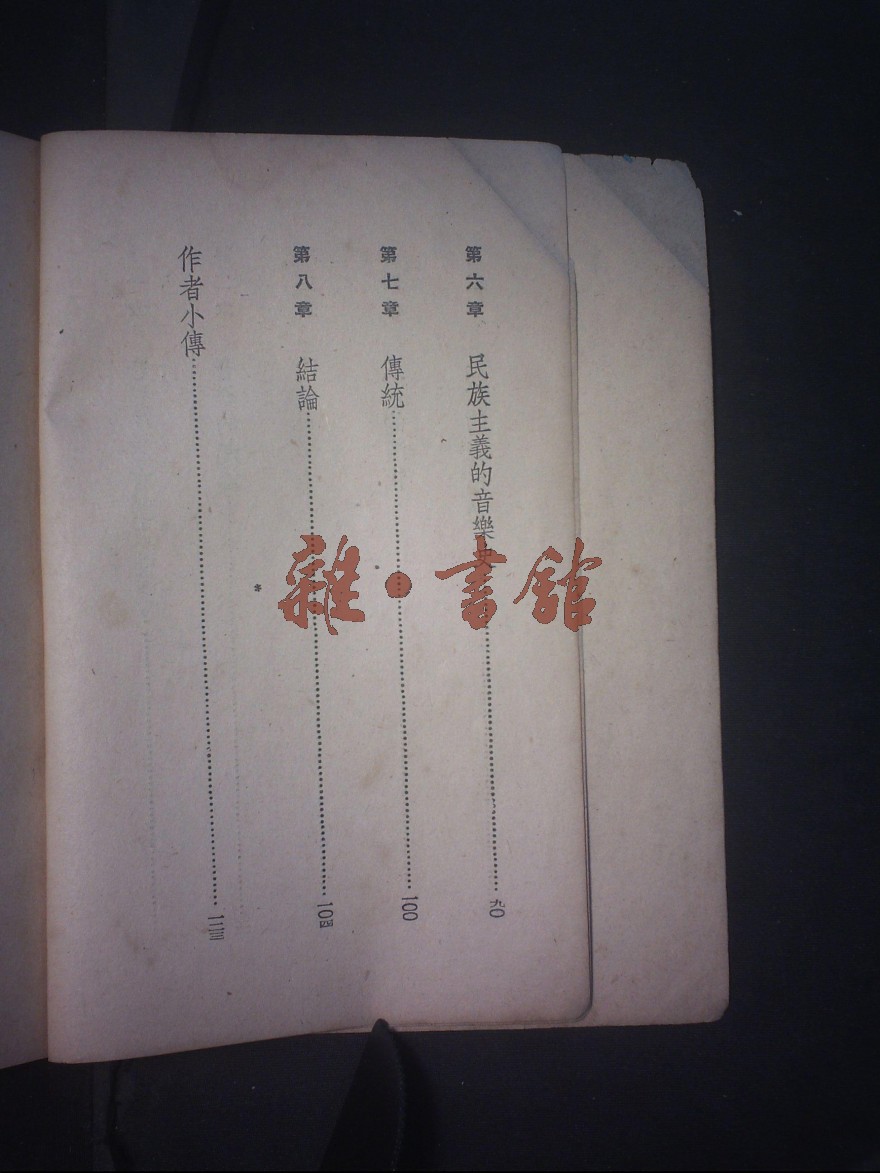 第六章 民族主義的音樂史……九〇
第七章 傳統……一〇〇
第八章 結論……一〇四
作者小傳……一一三
雜·書館